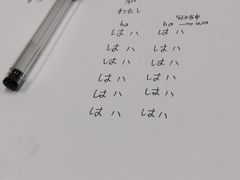 わたし
ha ha → wa
はハ はハ
はハ はハ
はハ はハ
はハ はハ
はハ はハ
はハ はハ